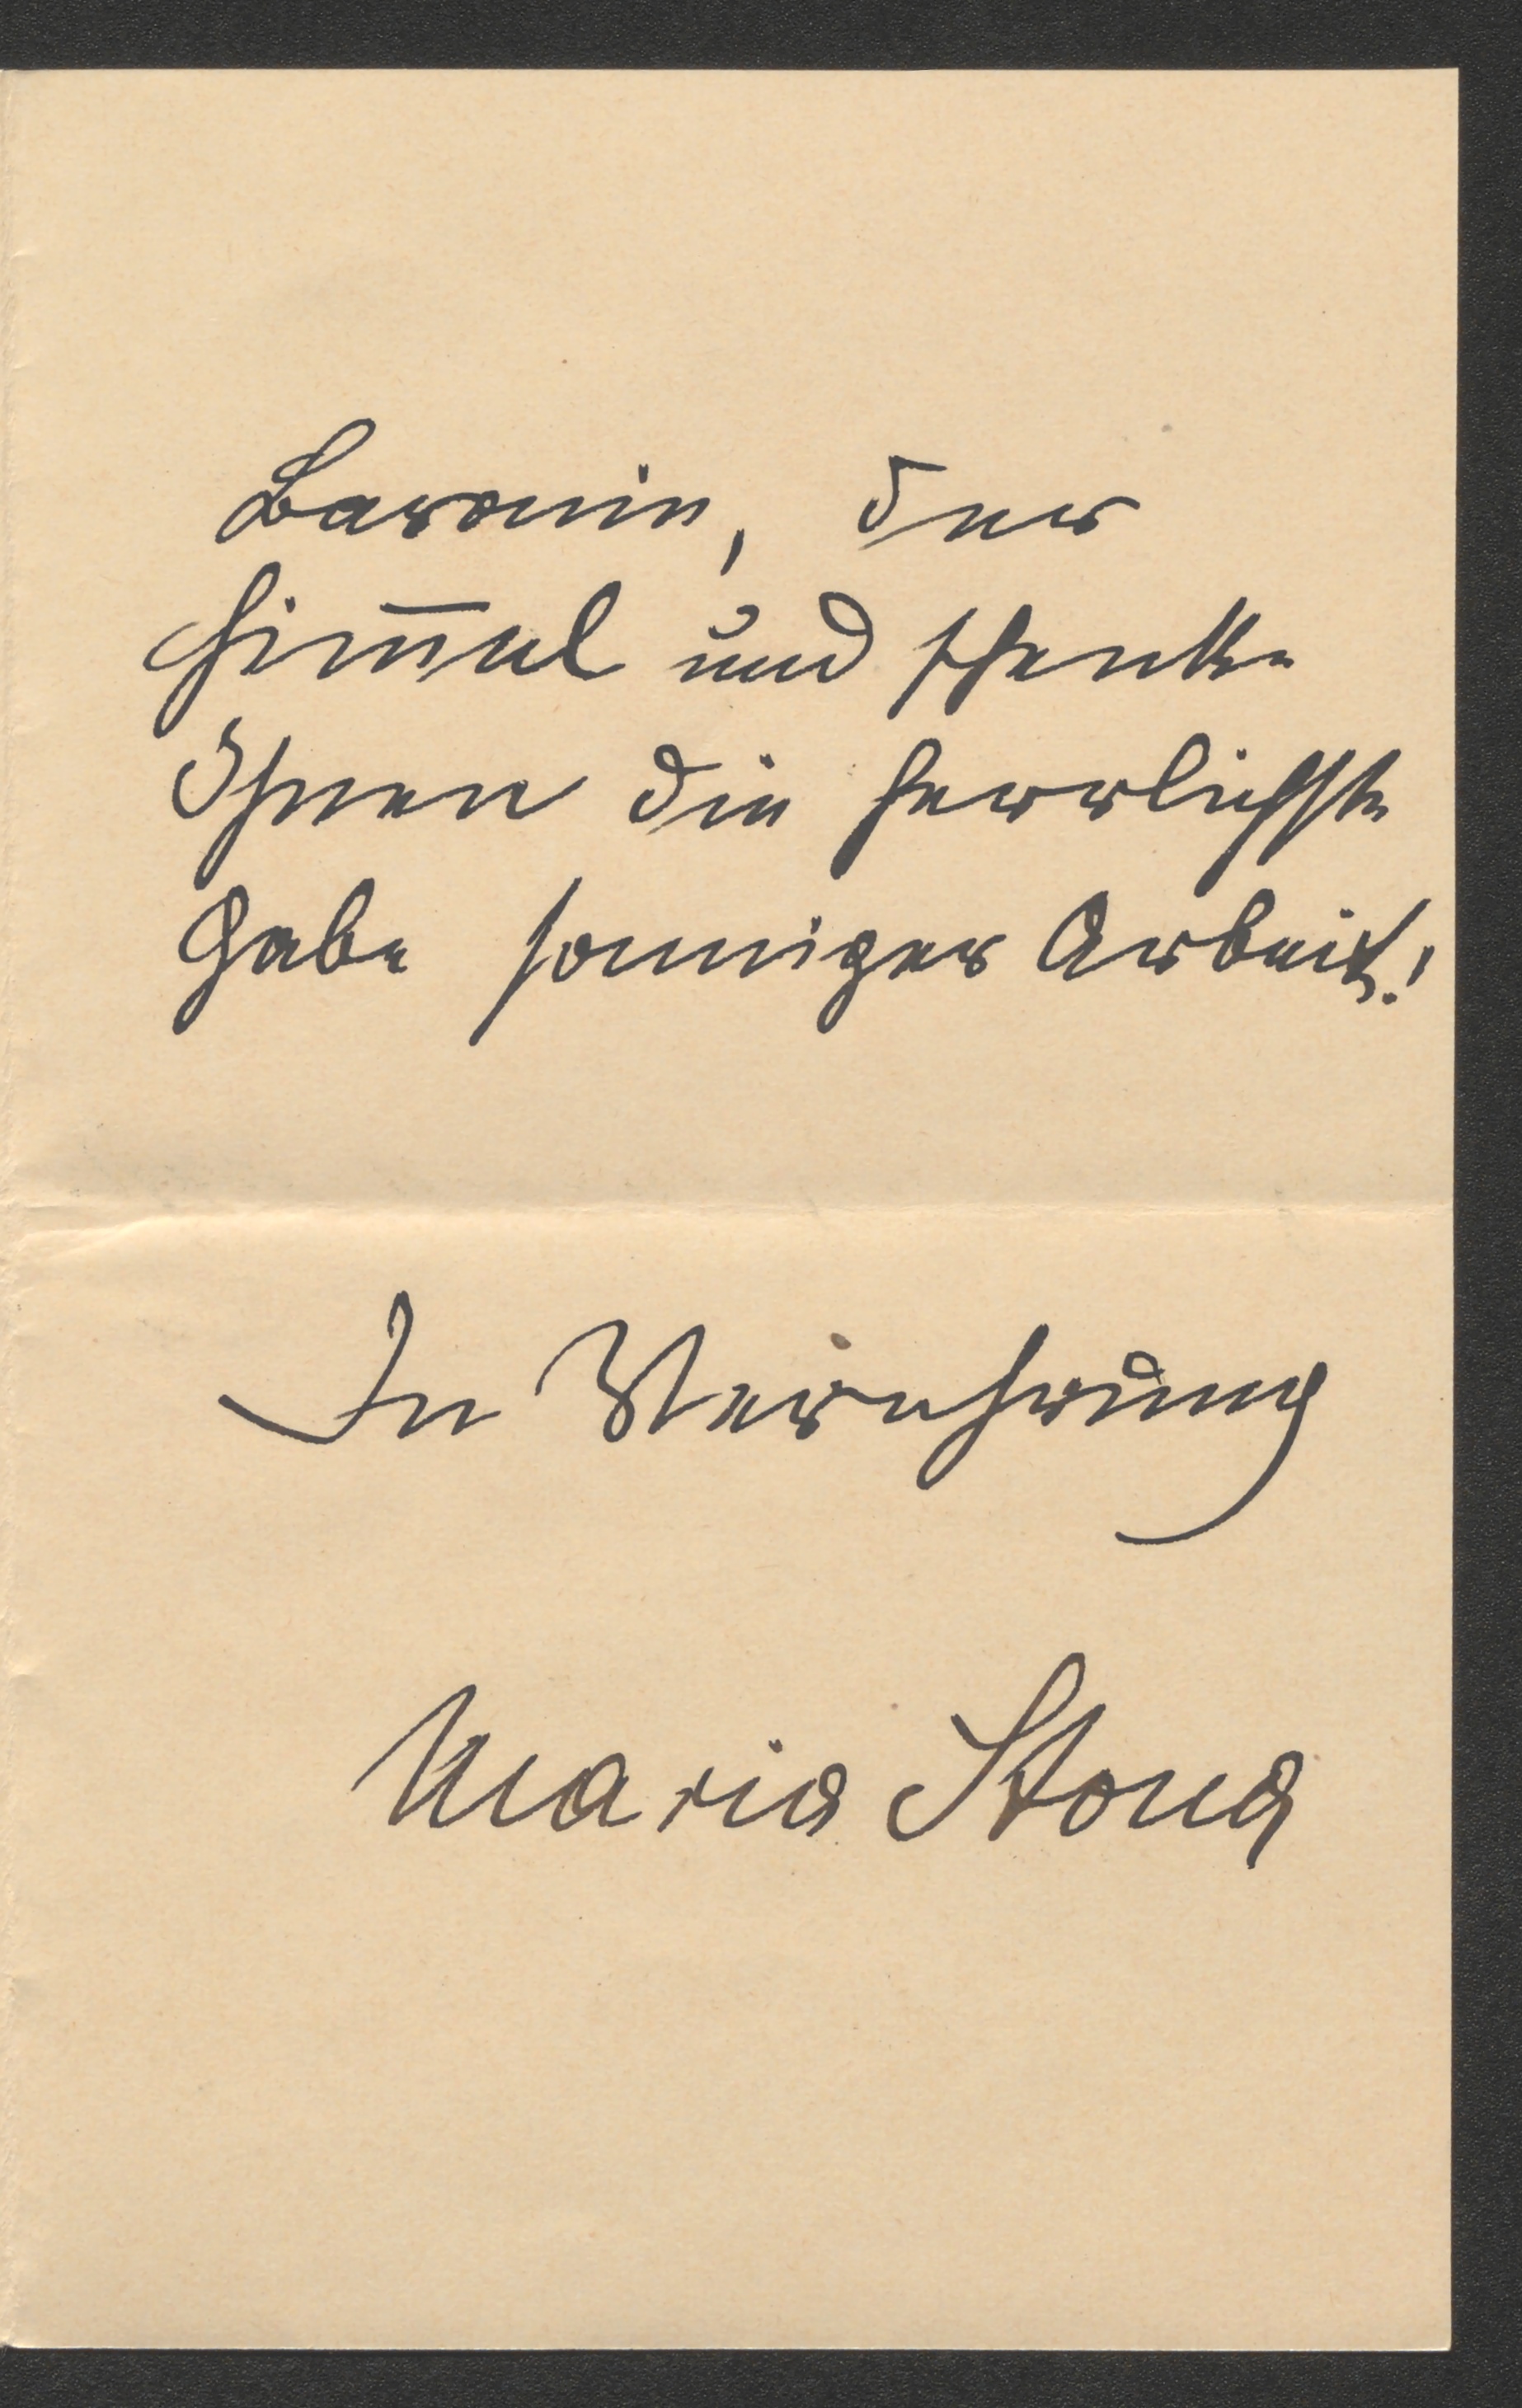 Baronin, der
Him̅el und schenke
Ihnen die herrlichste
Gabe sonniger Arbeit!
In Verehrung
Maria Stona